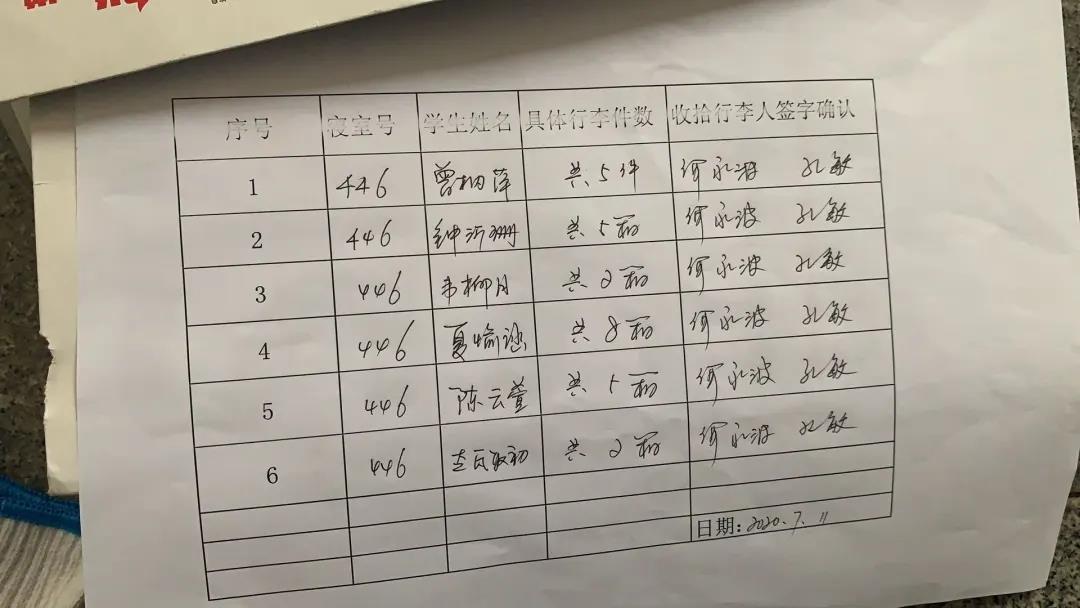 序号 寝室号 学生姓名 具体行李件数 收拾行李人签字确认
1 446 曾栩萍 共5件 何永波 孔敏
2 446 钟沂珊 共5箱 何永波 孔敏
3 446 韦柳月 共2箱 何永波 孔敏
4 446 夏愉涵 共8箱 何永波 孔敏
5 446 陈云萱 共5箱 何永波 孔敏
6 446 共2箱 何永波 孔敏
日期:2020.7.11